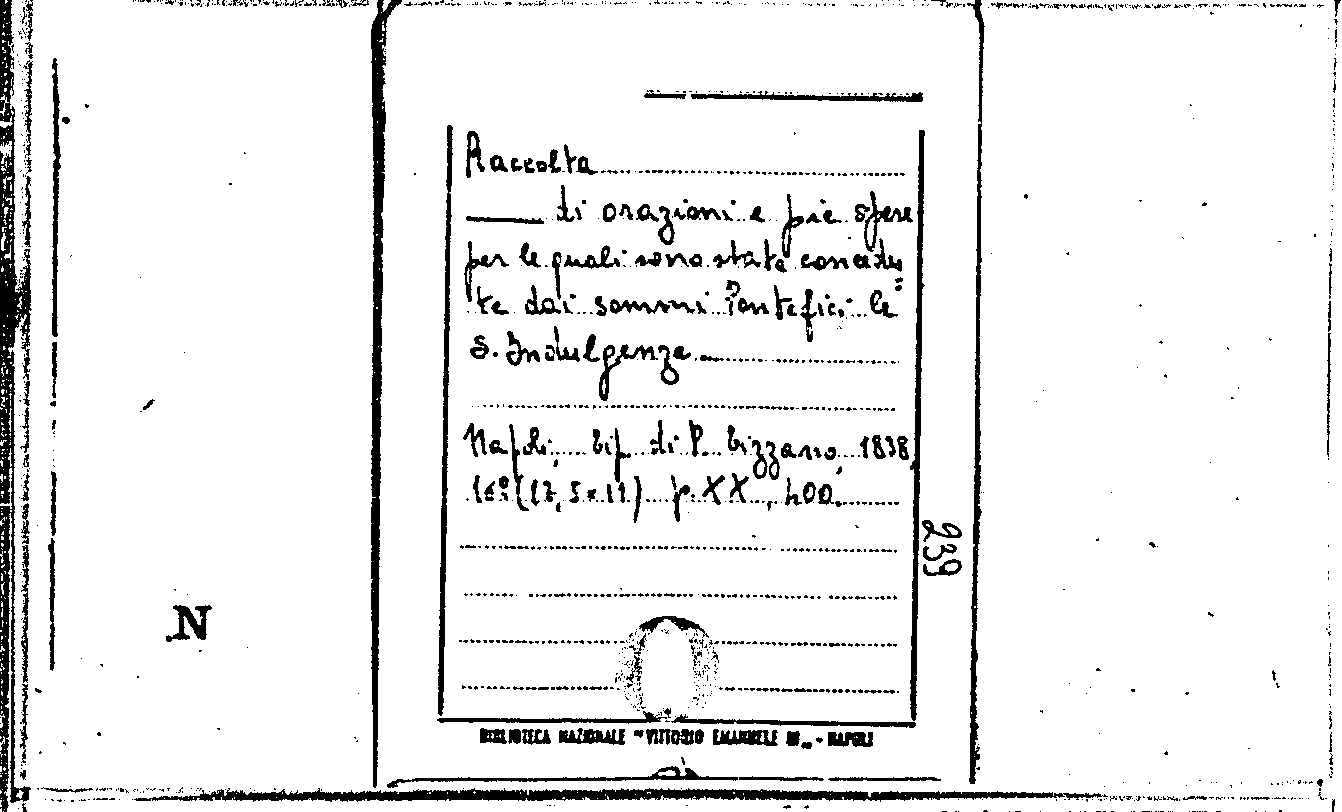 Raccolta
di orazioni e pie opere
per le quali sono state concedu=
te dai sommi Pontefici le
S. Indulgenze
Napoli, tip. di P. Tizzano, 1838,
16º (17,5×11) p. XX, 400.
239
N
BIBLIOTECA NAZIONALE "VITTORIO EMANUELE III" - NAPOLI